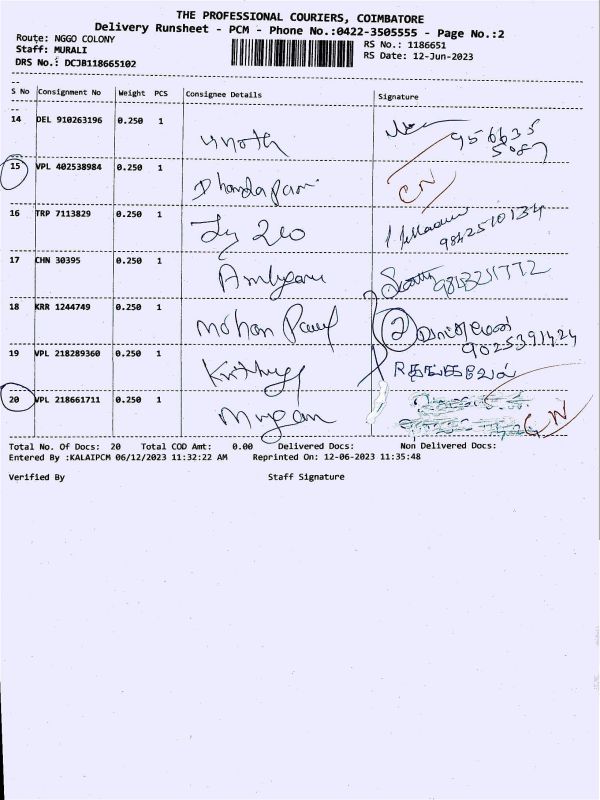 THE PROFESSIONAL COURIERS, COIMBATORE
Delivery Runsheet - PCM - Phone No.:0422-3505555 - Page No.:2
Route: NGGO COLONY
RS No.: 1186651
Staff: MURALI
RS Date: 12-Jun-2023
DRS No.: DCJB118665102
S No Consignment No Weight PCS Consignee Details Signature
14 DEL 910263196 0.250 1
956635
15 VPL 402538984 0.250 1 Dhandapani CN
16 TRP 7113829 0.250 1 9842510134
17 CHN 30395 0.250 1 9843231772
18 KRR 1244749 0.250 1 Mohan Paul 2
9025391424
19 VPL 218289360 0.250 1
20 VPL 218661711 0.250 1 Murgan CN
Total No. Of Docs: 20 Total COD Amt: 0.00 Delivered Docs: Non Delivered Docs:
Entered By :KALAIPCM 06/12/2023 11:32:22 AM Reprinted On: 12-06-2023 11:35:48
Verified By Staff Signature